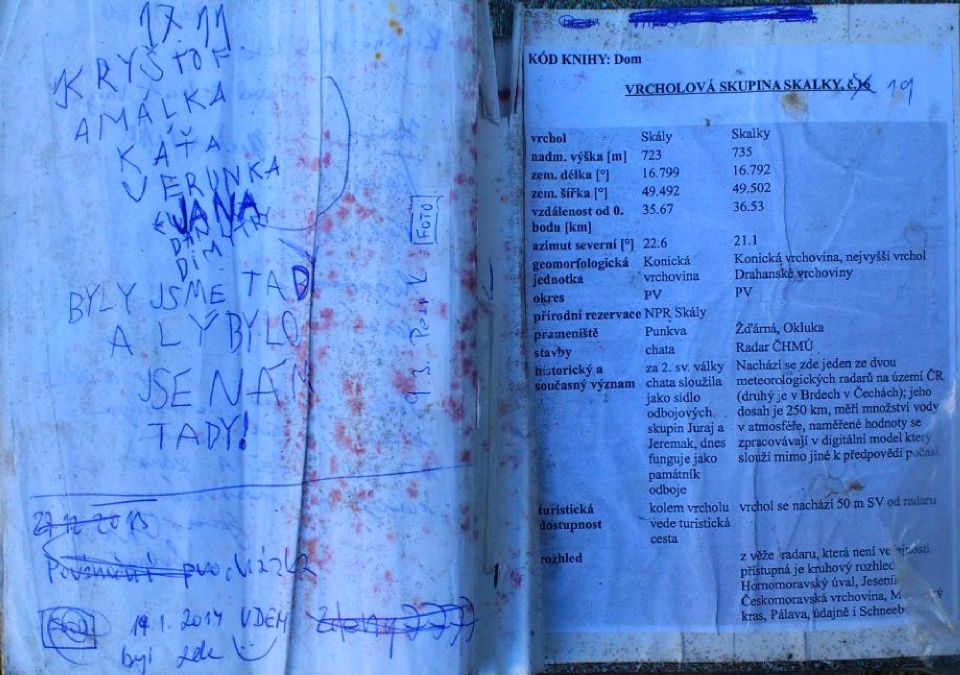 17 11
KRYŠTOF
AMÁLKA
KÁŤA
VERUNKA
JANA
DAN
DIM
BYLY JSME TAD
A LÝBYLO
JSE NÁM
TADY!
9.3. Petr V. FOTO
27.12.2015
procházka
19.1.2014 VDEM
byl zde
KÓD KNIHY: Dom
VRCHOLOVÁ SKUPINA SKALKY, č.16 19
vrchol Skály Skalky
nadm. výška [m] 723 735
zem. délka [°] 16.799 16.792
zem. šířka [°] 49.492 49.502
vzdálenost od 0. 35.67 36.53
bodu [km]
azimut severní [°] 22.6 21.1
geomorfologická Konická Konická vrchovina, nejvyšší vrchol
jednotka vrchovina Drahanské vrchoviny
okres PV PV
přírodní rezervace NPR Skály
prameniště Punkva Žďárná, Okluka
stavby chata Radar ČHMÚ
historický a za 2. sv. války Nachází se zde jeden ze dvou
současný význam chata sloužila meteorologických radarů na území ČR
jako sídlo (druhý je v Brdech v Čechách); jeho
odbojových dosah je 250 km, měří množství vody
skupin Juraj a v atmosféře, naměřené hodnoty se
Jeremak, dnes zpracovávají v digitální model který
funguje jako slouží mimo jiné k předpovědi počasí.
památník
odboje
turistická kolem vrcholu vrchol se nachází 50 m SV od radaru
dostupnost vede turistická
cesta
rozhled z věže radaru, která není
přístupná je kruhový rozhled
Hornomoravský úval,
Českomoravská vrchovina,
kras, Pálava, údajně i Schneeb